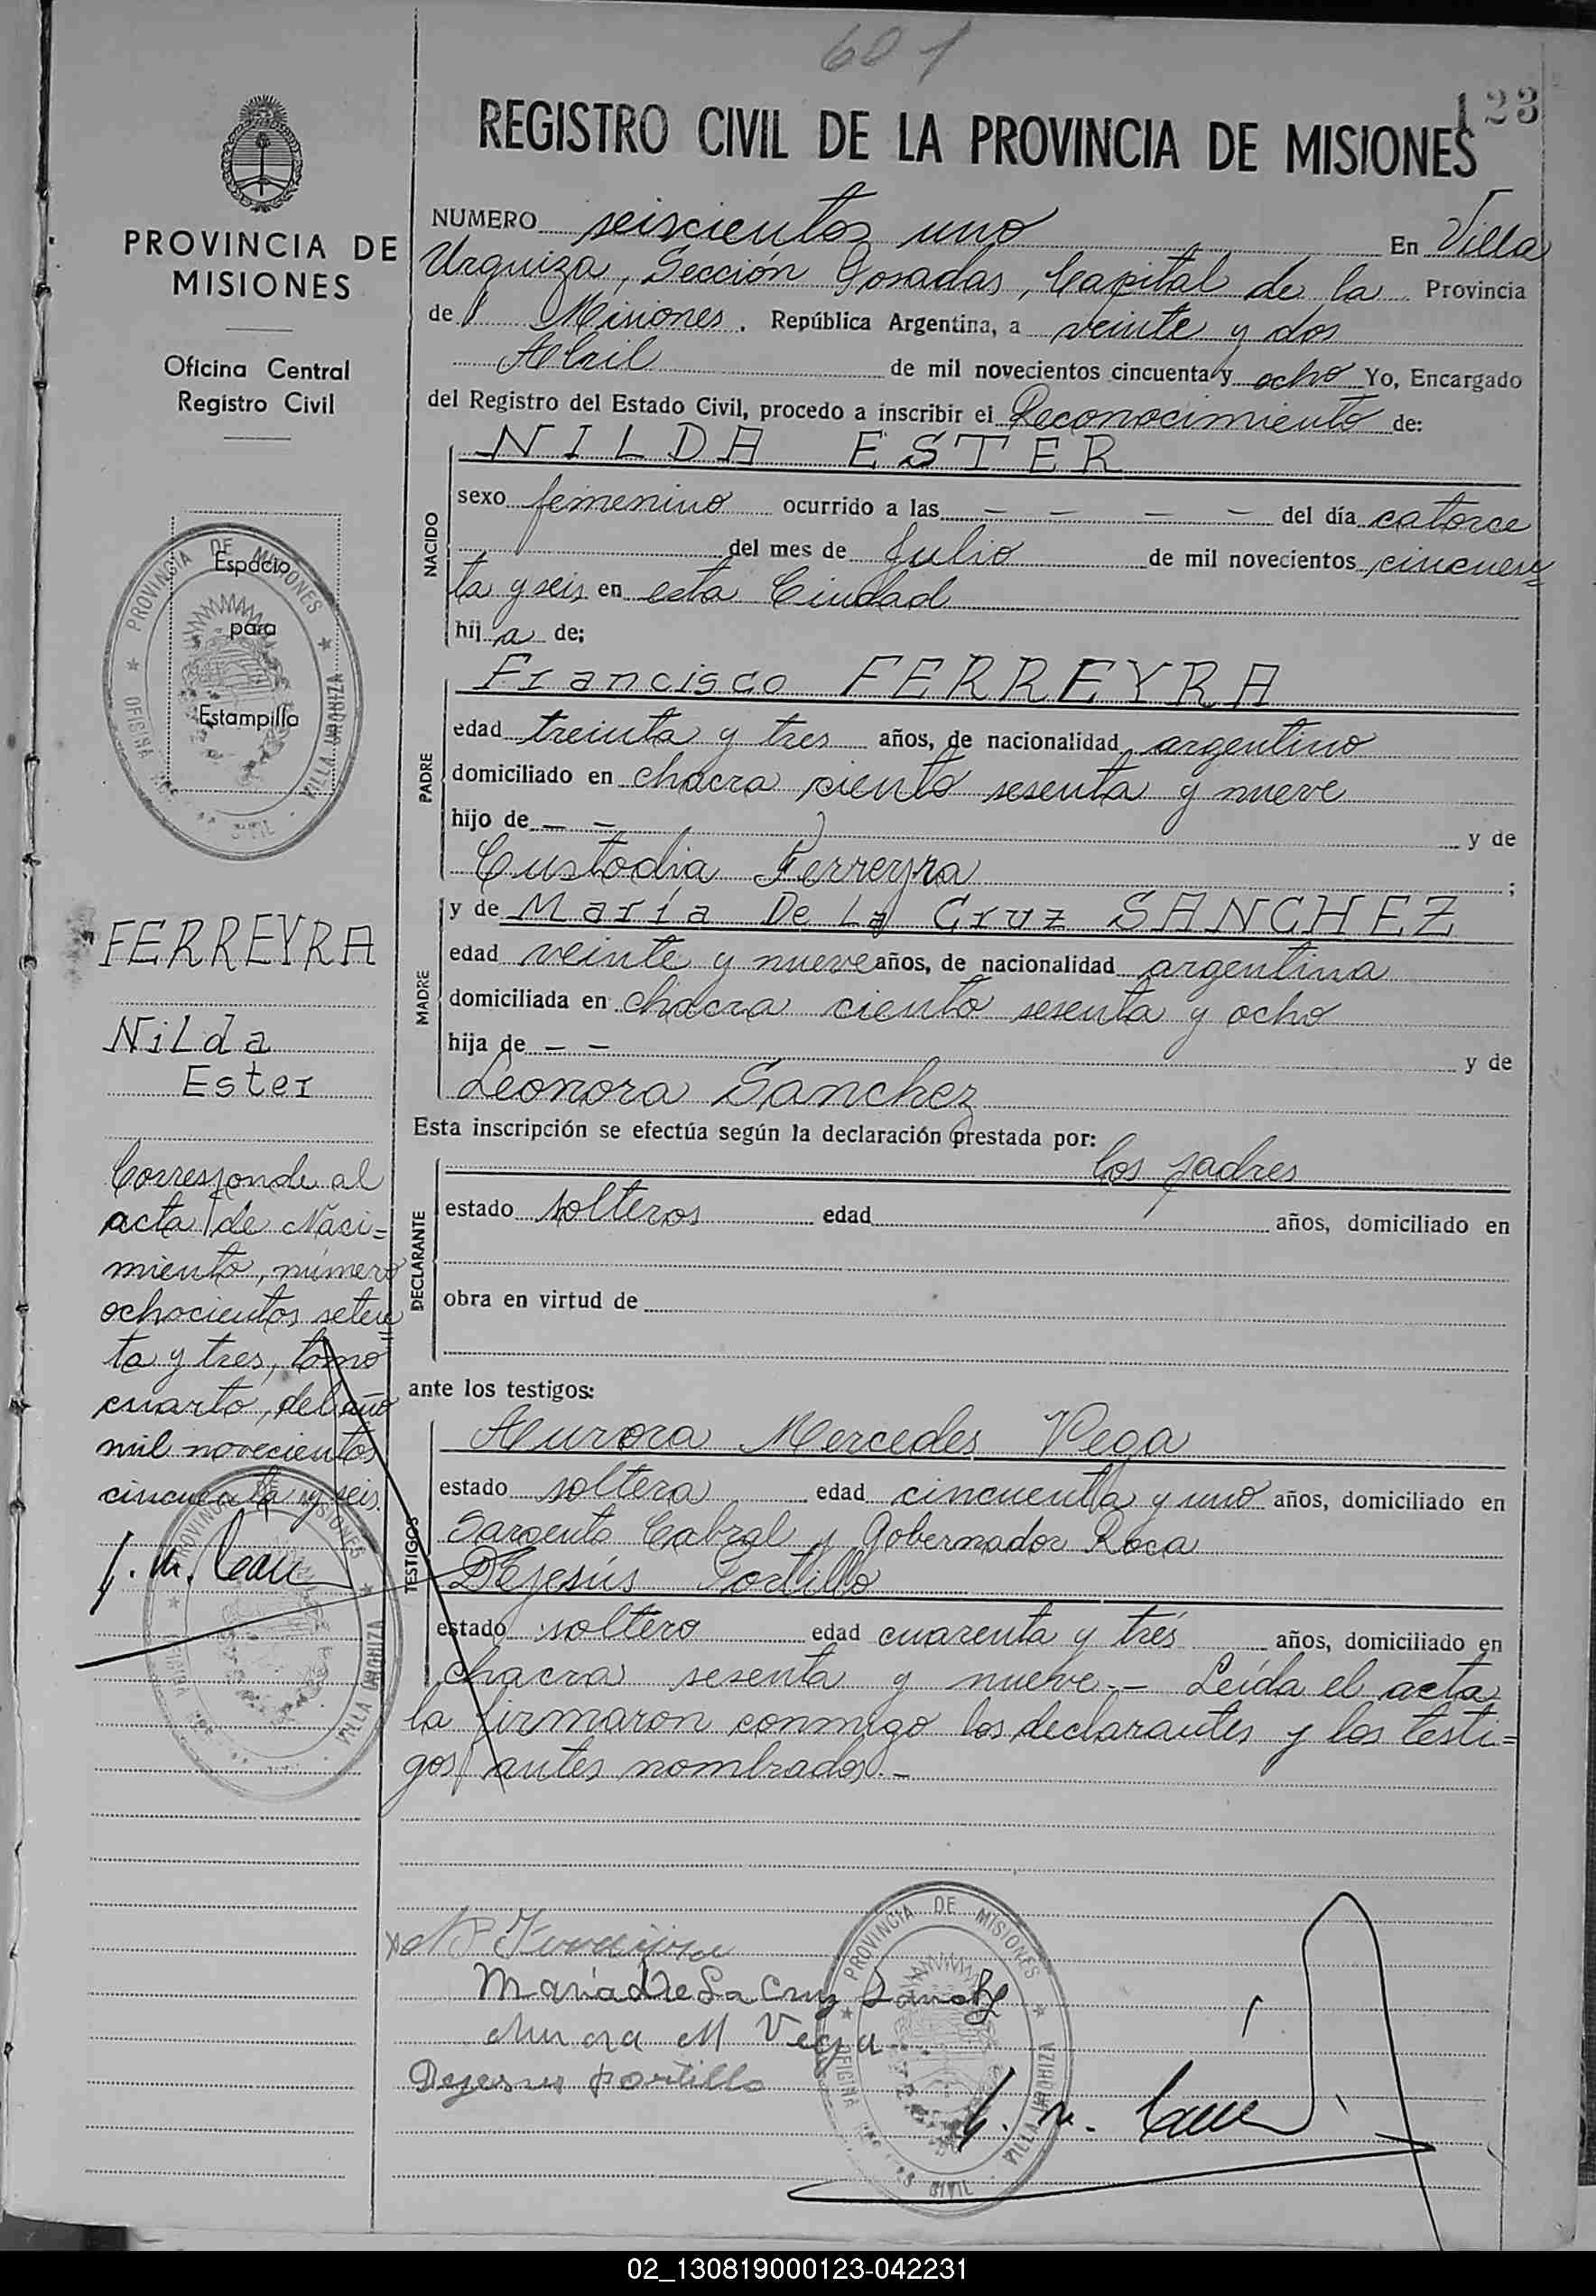 601
123
REGISTRO CIVIL DE LA PROVINCIA DE MISIONES
PROVINCIA DE
MISIONES
Oficina Central
Registro Civil
Espacio
para
Estampilla
PROVINCIA DE MISIONES
OFICINA
CIVIL
VILLA URQUIZA
FERREYRA
Nilda
Ester
Corresponde al
acta de Naci=
miento, número
ochocientos seten=
ta y tres, tomo
cuarto, del año
mil novecientos
cincuenta y seis.
PROVINCIA DE MISIONES
OFICINA
VILLA URQUIZA
NUMERO seiscientos uno En Villa
Urquiza, Sección Posadas, Capital de la Provincia
de Misiones. República Argentina, a veinte y dos
Abril de mil novecientos cincuenta y ocho Yo, Encargado
del Registro del Estado Civil, procedo a inscribir el Reconocimiento de:
NACIDO
NILDA ESTER
sexo femenino ocurrido a las — — — — del día catorce
del mes de Julio de mil novecientos cincuen=
ta y seis en esta Ciudad
hija de:
PADRE
Francisco FERREYRA
edad treinta y tres años, de nacionalidad argentino
domiciliado en chacra ciento sesenta y nueve
hijo de — — y de
Custodia Ferreyra ;
MADRE
y de María De La Cruz SANCHEZ
edad veinte y nueve años, de nacionalidad argentina
domiciliada en chacra ciento sesenta y ocho
hija de — — y de
Leonora Sanchez
Esta inscripción se efectúa según la declaración prestada por:
DECLARANTE
los padres
estado solteros edad años, domiciliado en
obra en virtud de
ante los testigos:
TESTIGOS
Aurora Mercedes Vega
estado soltera edad cincuenta y uno años, domiciliado en
Sargento Cabral y Gobernador Roca
DEjesús Portillo
estado soltero edad cuarenta y trés años, domiciliado en
chacra sesenta y nueve.— Leída el acta
la firmaron conmigo los declarantes y los testi=
gos antes nombrados.—
Ferreyra
Maria de La Cruz Sanchez
Aurora M Vega
Dejesus portillo
PROVINCIA DE MISIONES
OFICINA
CIVIL
VILLA URQUIZA
02_130819000123-042231